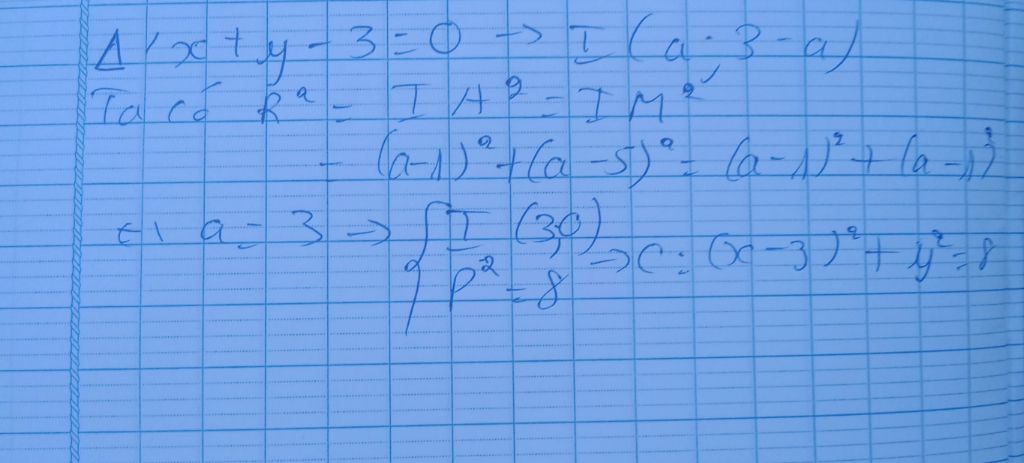 Δ: x + y - 3 = 0 → I (a; 3 - a)
Ta có R² = IA² = IM²
= (a-1)² + (a-5)² = (a-1)² + (a-1)²
<-> a = 3 → { I (3,0)
R² = 8 → C: (x-3)² + y² = 8